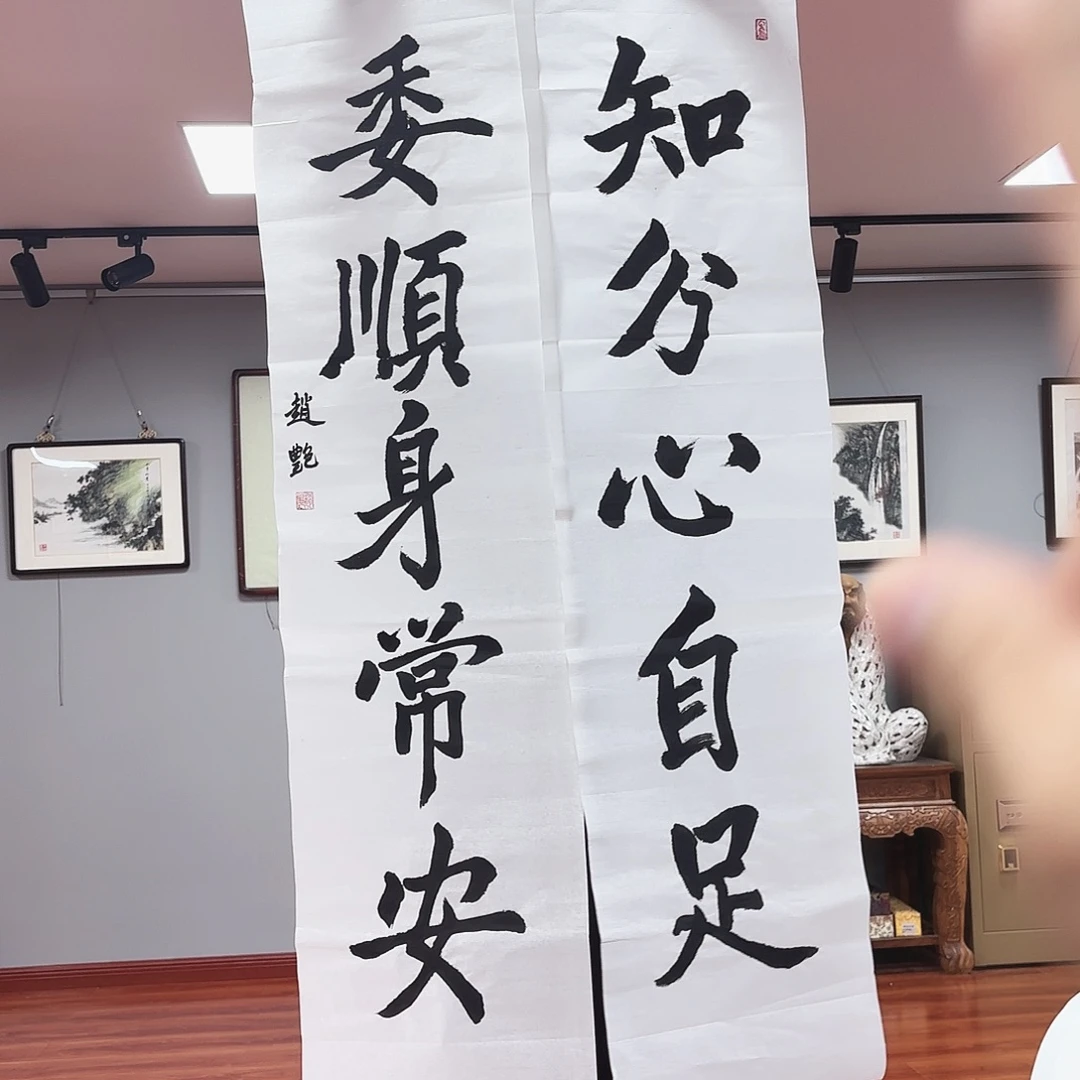 知分心自足
委順身常安
趙艷